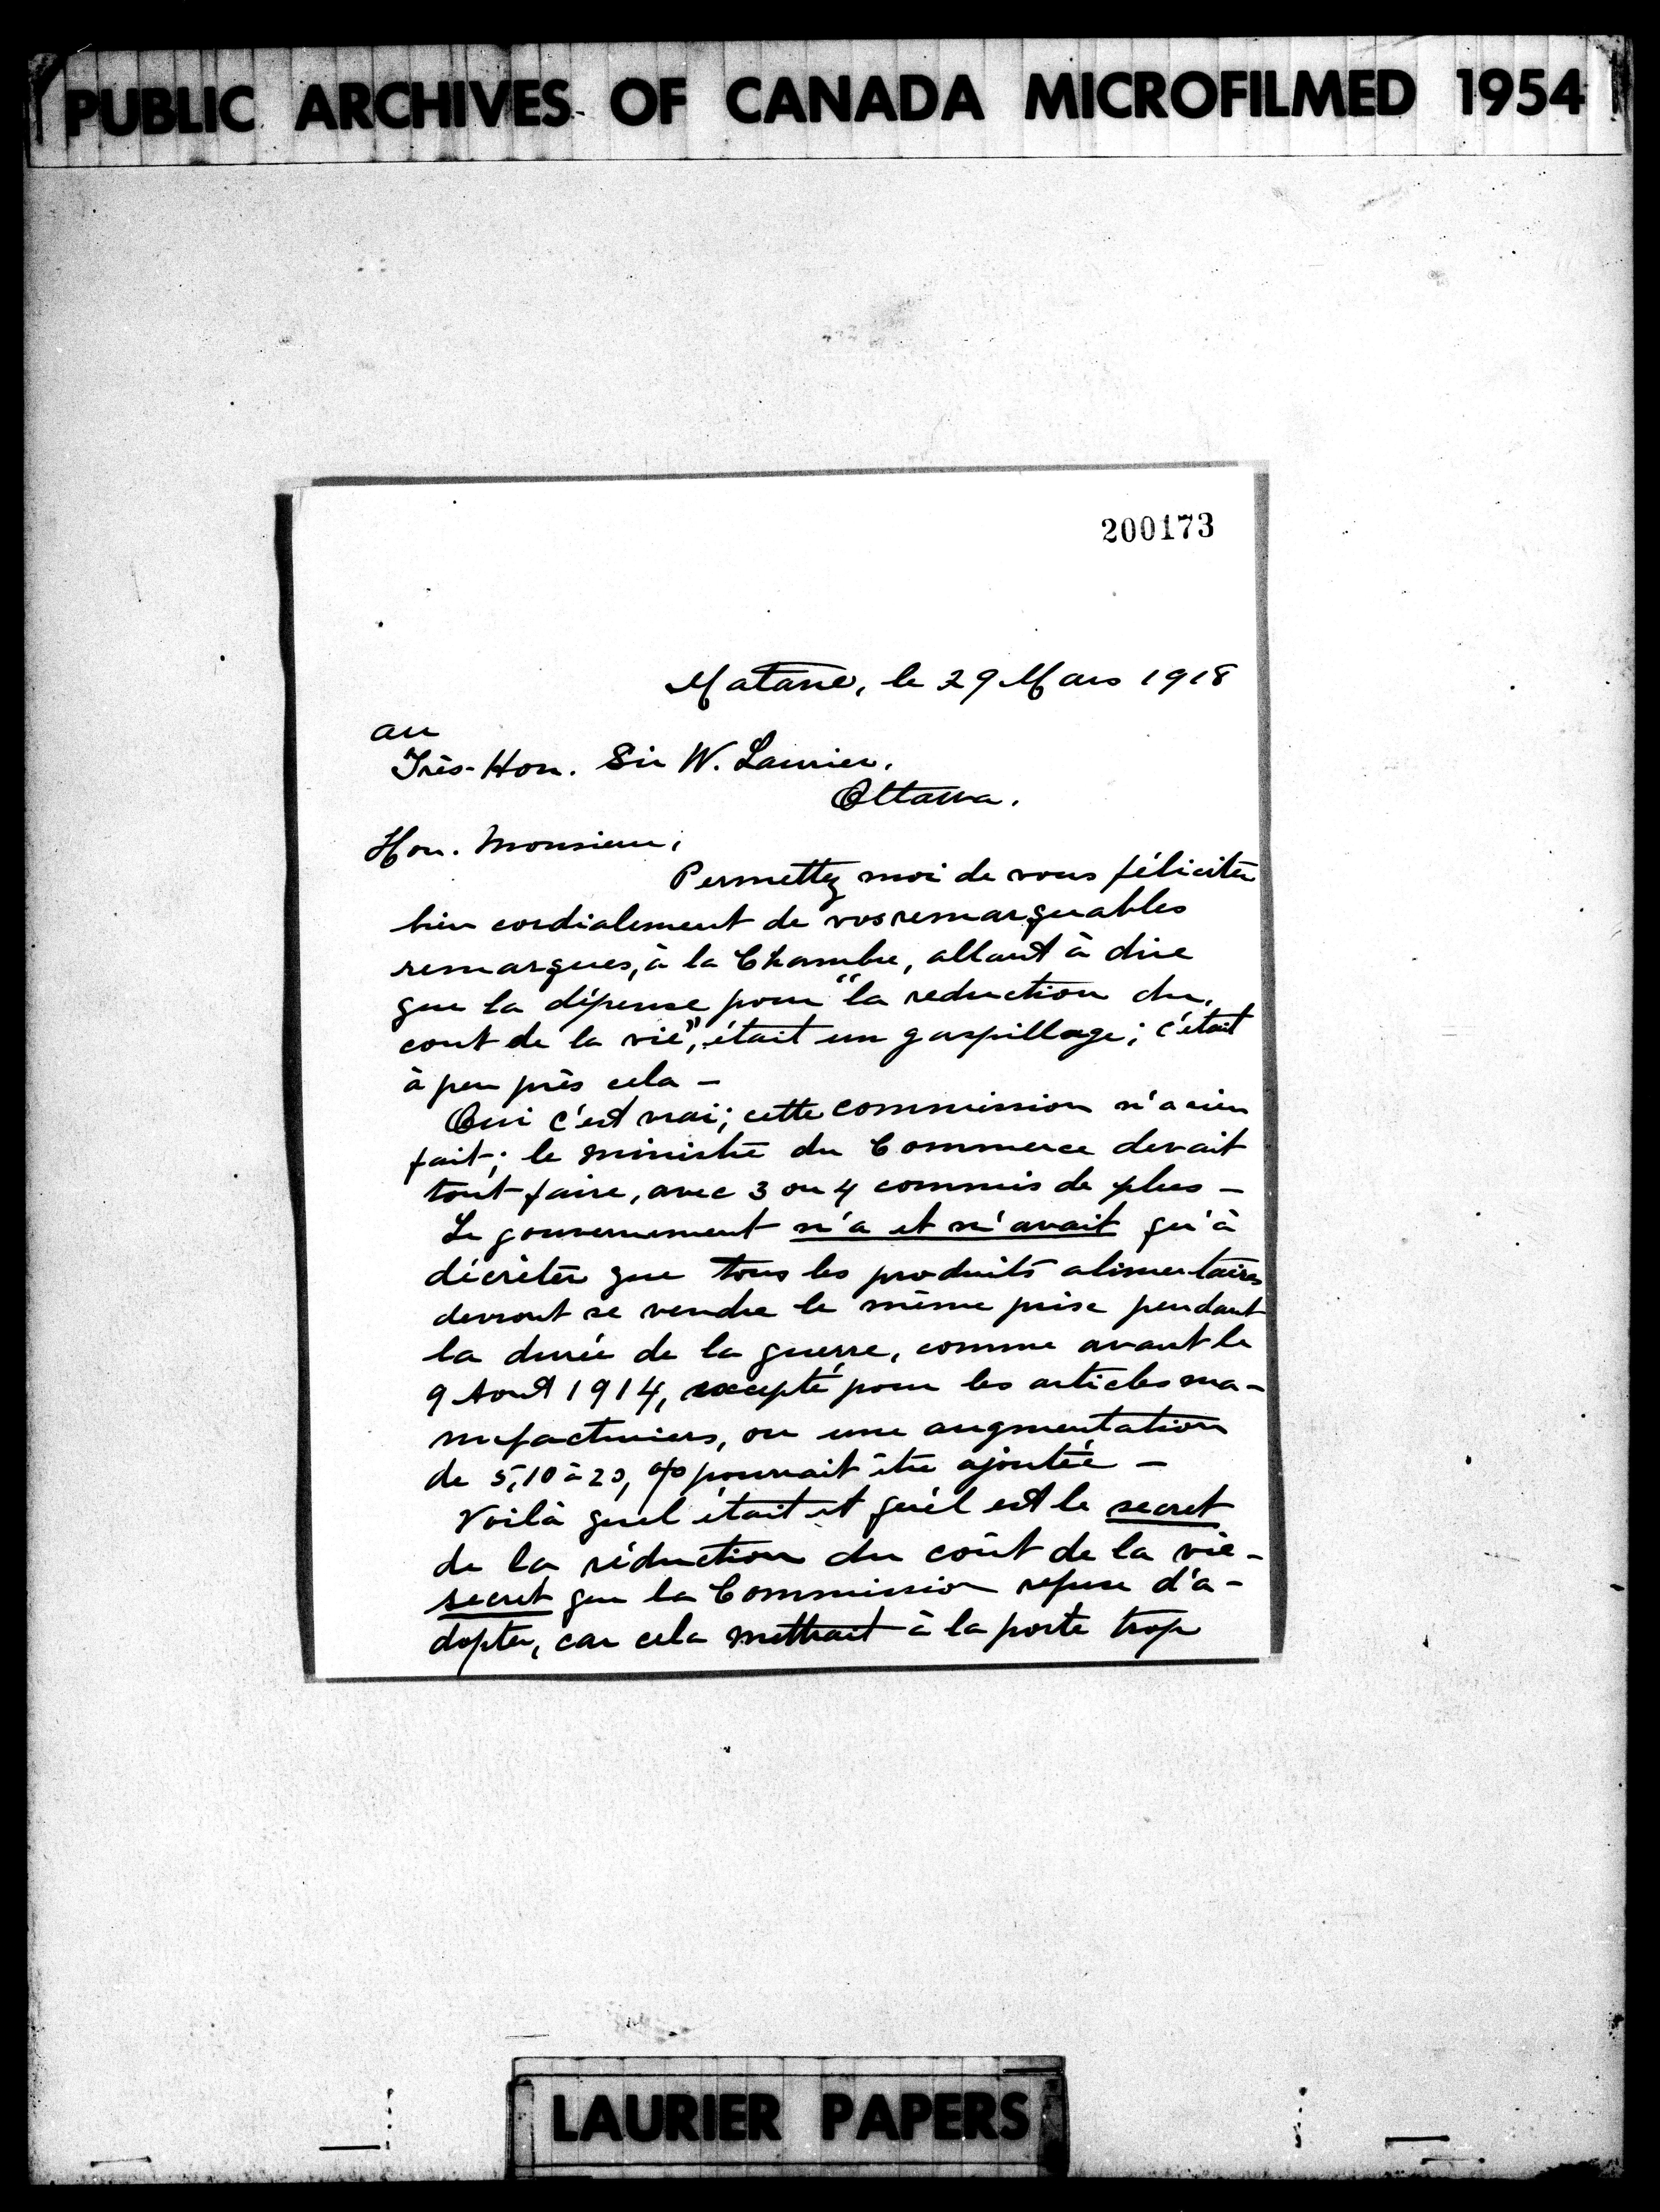 PUBLIC ARCHIVES OF CANADA MICROFILMED 1954
200173
Matane, le 29 Mars 1918
au
Très-Hon. Sir W. Laurier.
Ottawa.
Hon. Monsieur,
Permettez moi de vous féliciter
bien cordialement de vos remarquables
remarques, à la Chambre, allant à dire
que la dépense pour "la reduction du
cout de la vie", était un gaspillage; c'était
à peu près cela -
Oui c'est vrai; cette commission n'a rien
fait; le ministre du Commerce devait
tout faire, avec 3 ou 4 commis de plus -
Le gouvernement n'a et n'avait qu'à
décrèter que tous les produits alimentaires
devront se vendre le même prix pendant
la durée de la guerre, comme avant le
9 Aout 1914, excepté pour les articles ma-
nufacturiers, ou une augmentation
de 5, 10 à 20, % pourrait être ajoutée -
Voilà quel était et quel est le secret
de la réduction du coût de la vie -
secret que la Commission refuse d'a-
dopter, car cela mettrait à la porte trop
LAURIER PAPERS